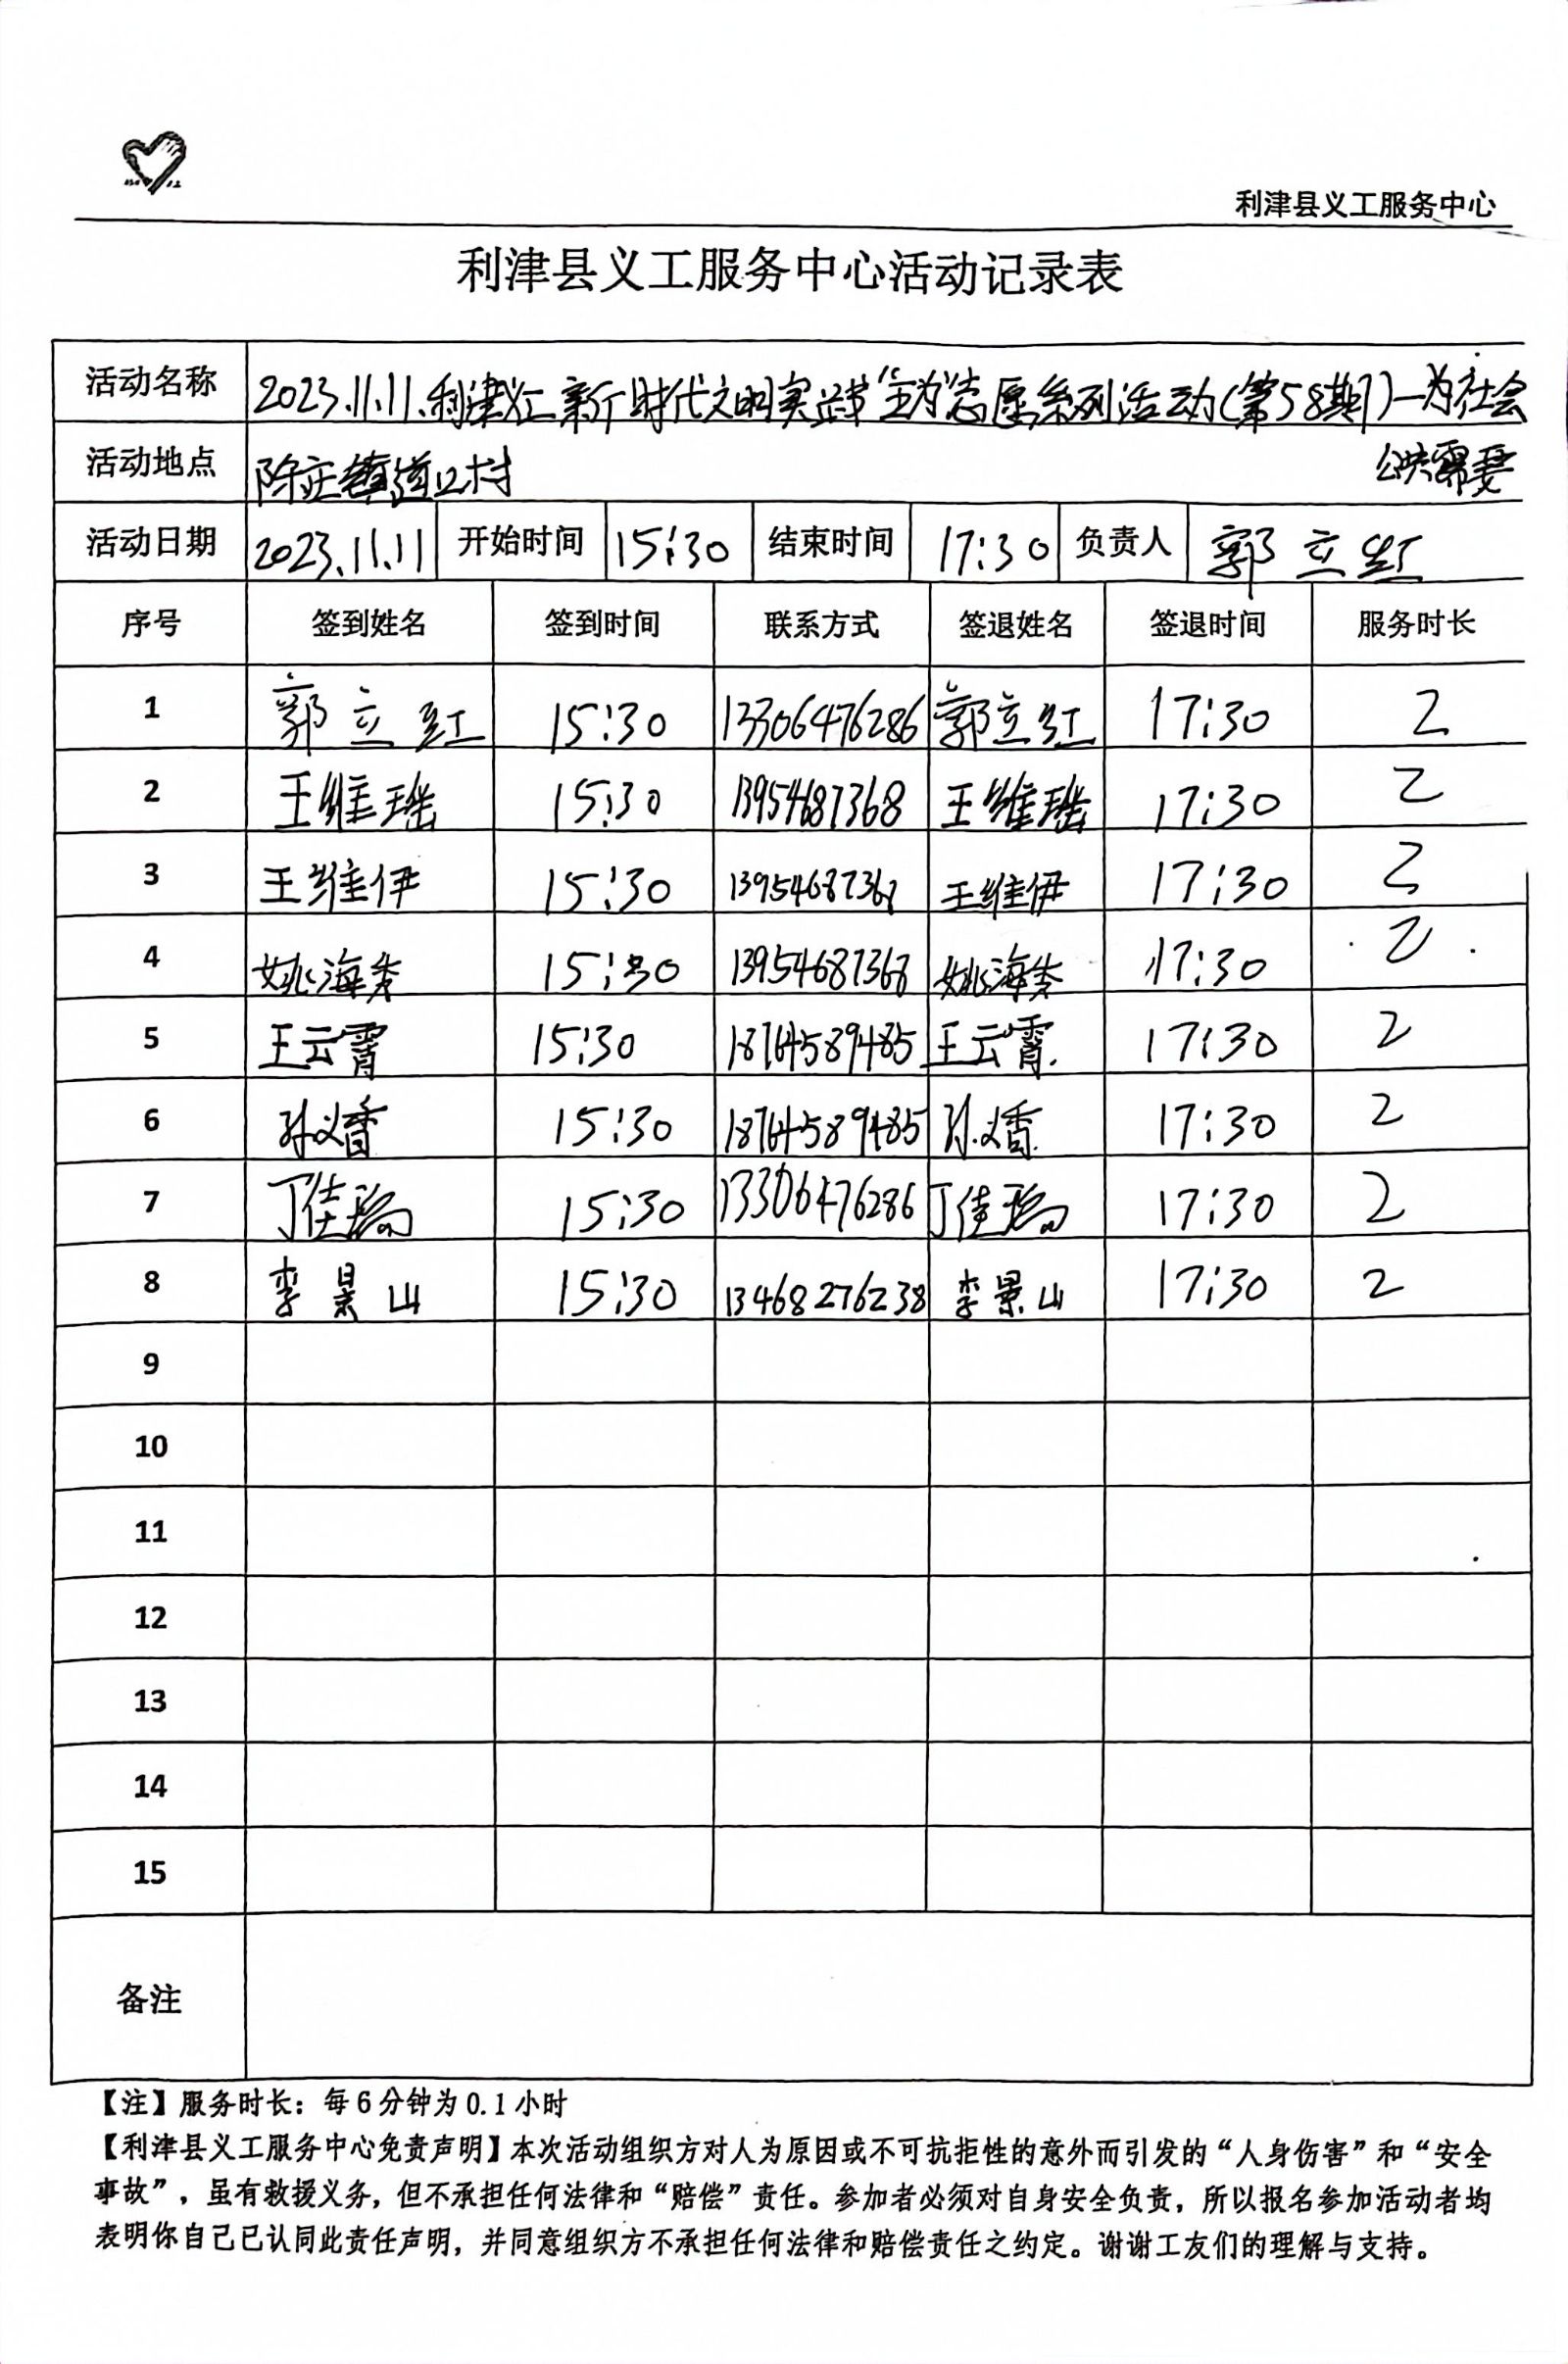 利津县义工服务中心
利津县义工服务中心活动记录表
活动名称 2023.11.11.利津义工新时代文明实践"全为"志愿系列活动(第58期)—为社会
活动地点 陈庄镇道口村 公共需要
活动日期 2023.11.11 开始时间 15:30 结束时间 17:30 负责人 郭立红
序号 签到姓名 签到时间 联系方式 签退姓名 签退时间 服务时长
1 郭立红 15:30 13306476286 郭立红 17:30 2
2 王维瑶 15:30 13954687368 王维瑶 17:30 2
3 王维伊 15:30 13954687368 王维伊 17:30 2
4 姚海芳 15:30 13954687368 姚海芳 17:30 2
5 王云霄 15:30 18764589485 王云霄 17:30 2
6 孙义香 15:30 18764589485 孙义香 17:30 2
7 丁佳瑞 15:30 13306476286 丁佳瑞 17:30 2
8 李景山 15:30 13468276238 李景山 17:30 2
9
10
11
12
13
14
15
备注
【注】服务时长：每6分钟为0.1小时
【利津县义工服务中心免责声明】本次活动组织方对人为原因或不可抗拒性的意外而引发的“人身伤害”和“安全
事故”，虽有救援义务，但不承担任何法律和“赔偿”责任。参加者必须对自身安全负责，所以报名参加活动者均
表明你自己已认同此责任声明，并同意组织方不承担任何法律和赔偿责任之约定。谢谢工友们的理解与支持。